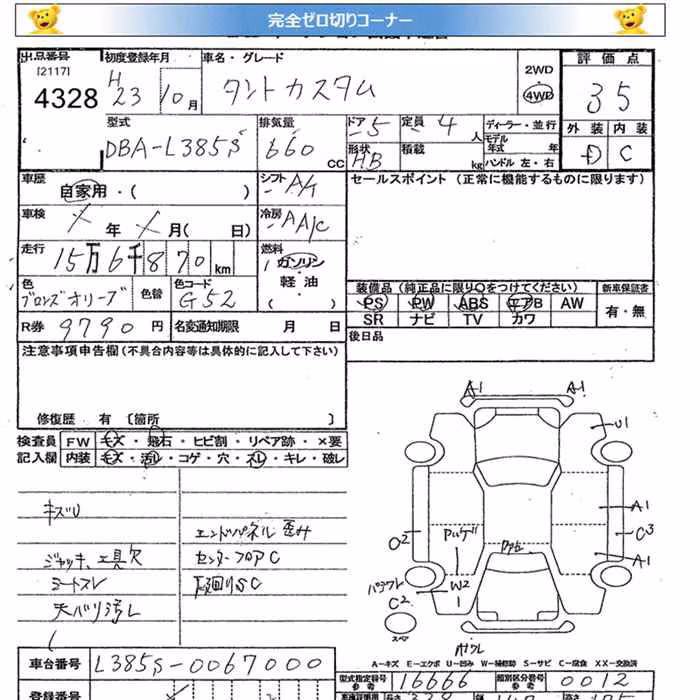 完全ゼロ切りコーナー
出品番号 初度登録年月 車名・グレード 評価点
[2117]
4328 H23 10月 タントカスタム 2WD 4WD 35
型式 排気量 ドア 5 定員 4人 ディーラー・並行 外装 内装
DBA-L385S 660CC 形状 HB 積載 kg モデル年式 年 ハンドル 左・右 D C
車歴 自家用・( ) シフト A/T セールスポイント (正常に機能するものに限ります)
車検 年 月( 日) 冷房 AA/C
走行 15万6千870km 燃料 ガソリン 軽油
色 ブロンズオリーブ 色替 色コード G52
装備品 (純正品に限り〇をつけてください) 新車保証書
PS PW ABS エアB AW 有・無
SR ナビ TV カワ
R券 9790円 名変通知期限 月 日 後日品
注意事項申告欄 (不具合内容等は具体的に記入して下さい)
修復歴 有 〔箇所 〕
検査員 FW キズ・飛石・ヒビ割・リペア跡・×要
記入欄 内装 キズ・汚レ・コゲ・穴・スレ・キレ・破レ
キズU
ジャッキ、工具欠
シートスレ
天バリ汚レ
エンドパネル歪み
センターフロアC
下廻りSC
A1 A1
U1
A1
C3
A1
C2
W2
C2
スペア
車台番号 L385S-0067000
A-キズ E-エクボ U-凹み W-補修跡 S-サビ C-腐食 XX-交換済
型式指定番号 参考 16666 類別区分番号 参考 0012
登録番号